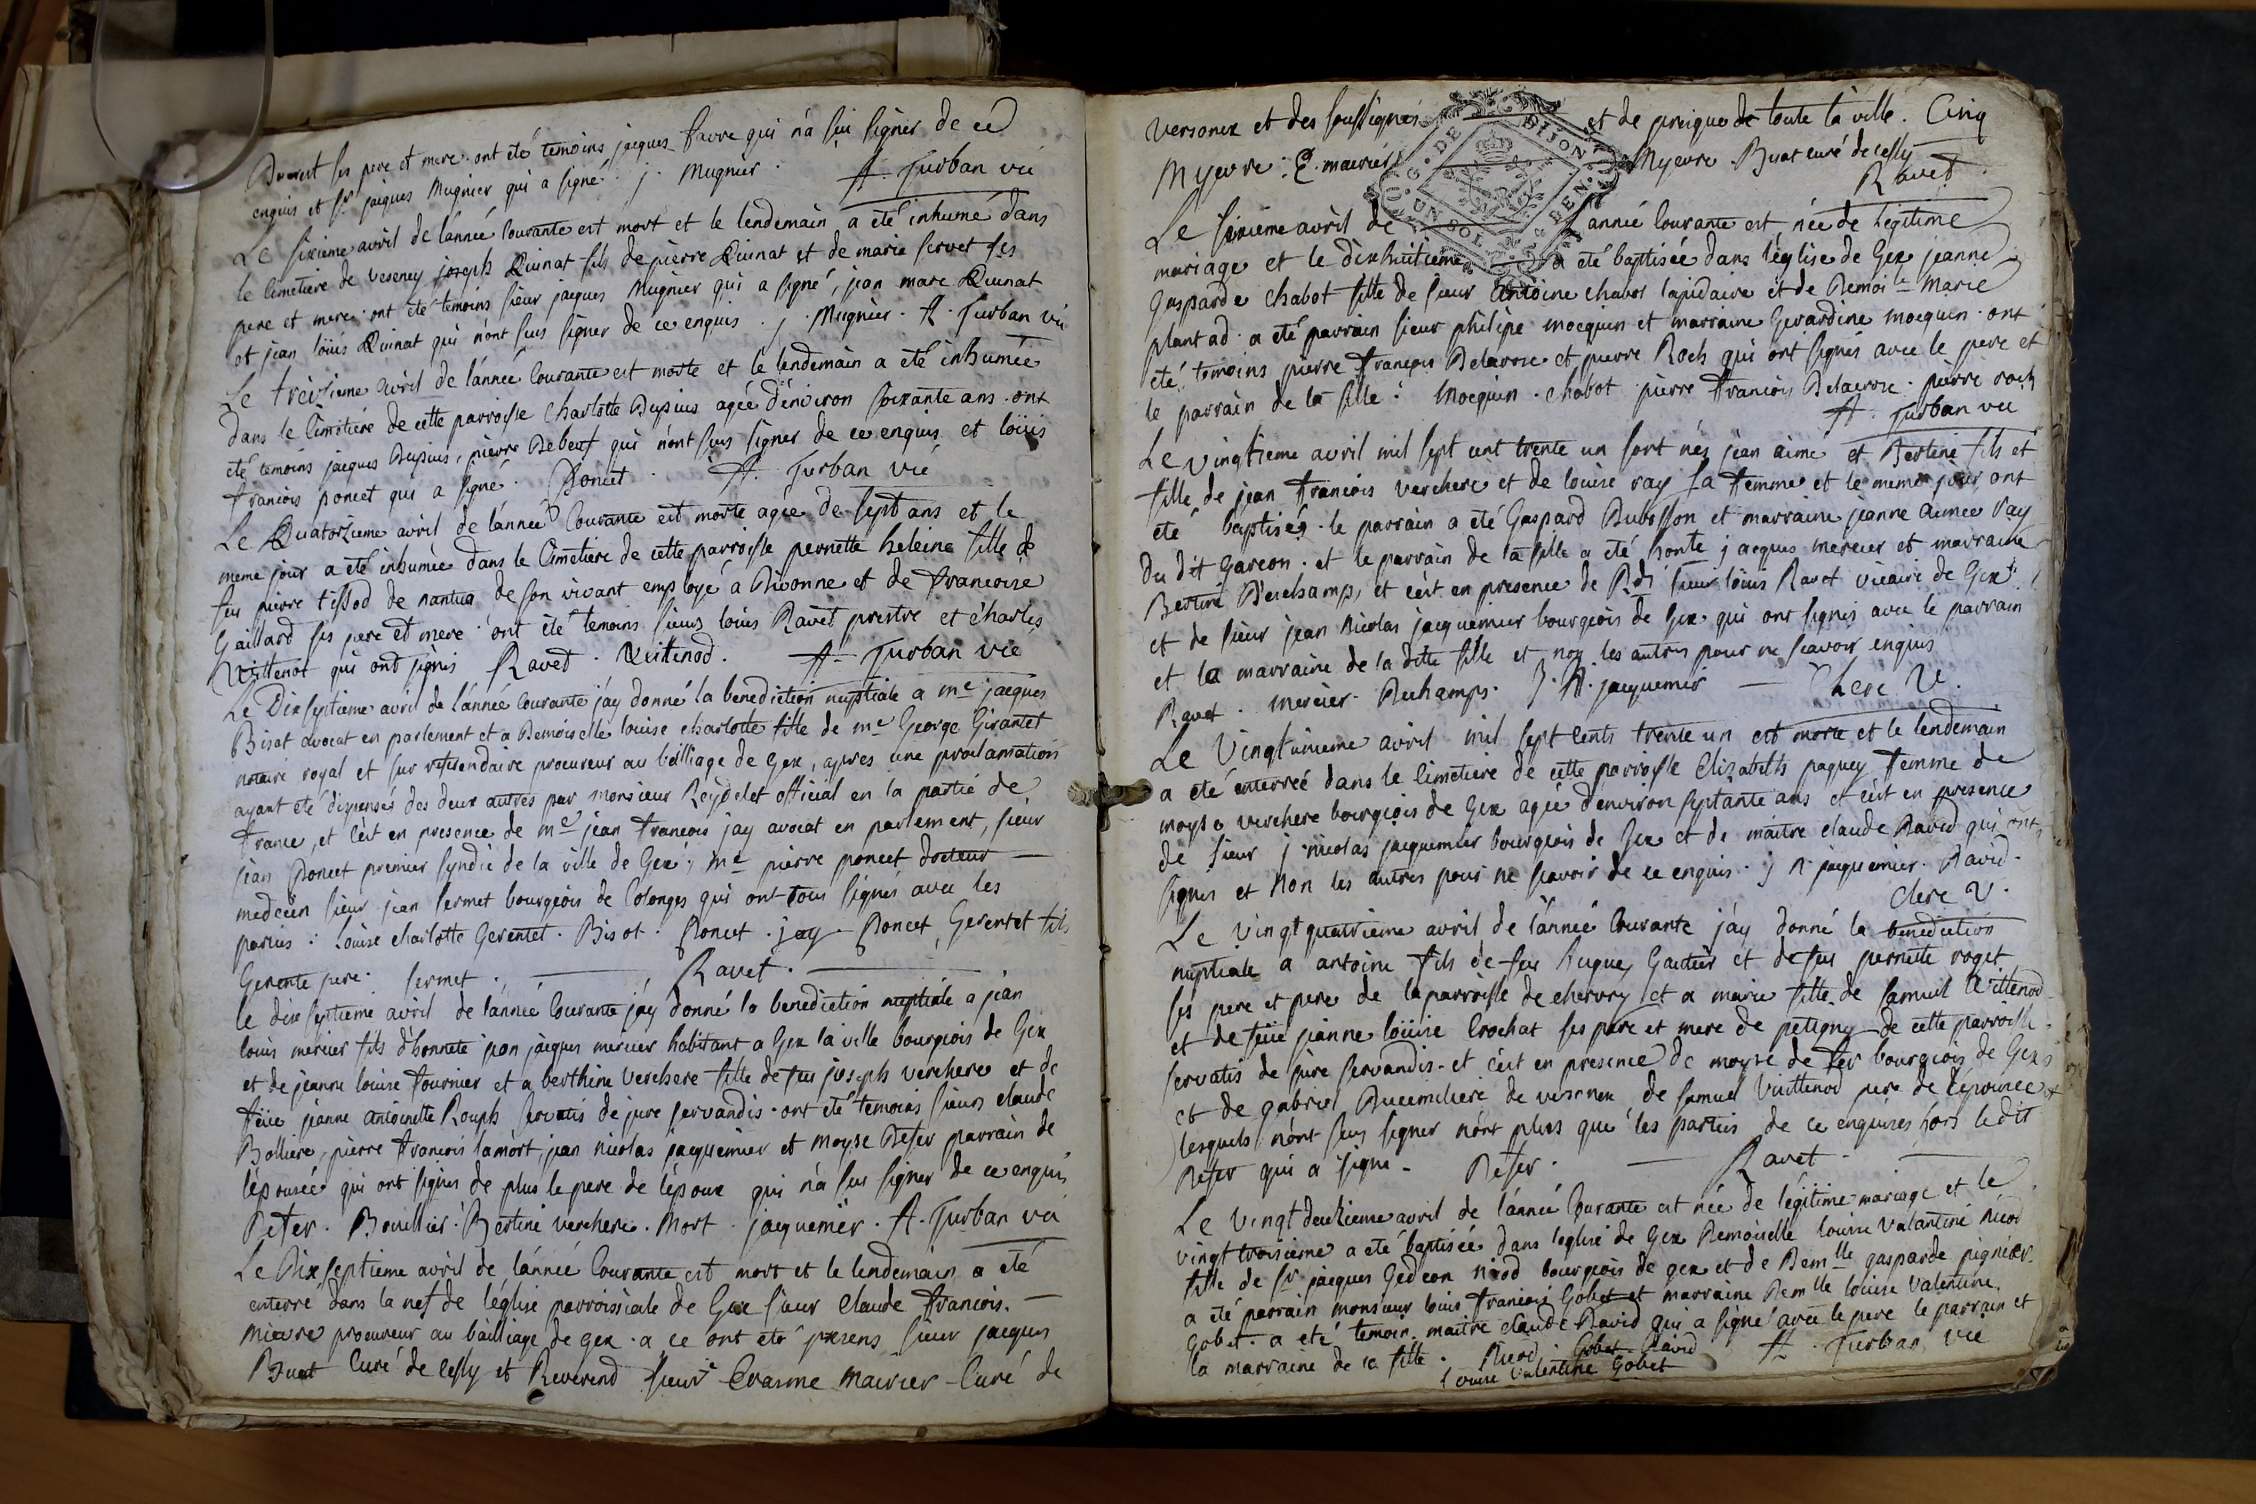 Ducret ses pere et mere. ont été temoins jacques favre qui n'a sçu signer de ce
enquis et Sr jacques Mugnier qui a signé. j. Mugnier. A. Turban vic
Le sixieme avril de l'année Courante est mort et le lendemain a été inhumé dans
le Cimetiere de vesency joseph Quinat fils de pierre Quinat et de marie servet ses
pere et mere. ont été temoins sieur jacques Mugnier qui a signé, jean marc Quinat
et jean loüis Quinat qui n'ont sçus signer de ce enquis. j. Mugnier. A. Turban vic
Le treizieme avril de l'année Courante est morte et le lendemain a été inhumée
dans le Cimetiere de cette parroisse Charlotte Dupuis agée d'environ soixante ans. ont
été temoins jacques Dupuis, pierre Debeuf qui n'ont sçus signer de ce enquis et loüis
francois poncet qui a signé. Poncet. A. Turban vic
Le Quatorzieme avril de l'année Courante est morte agée de sept ans et le
meme jour a été inhumée dans le Cimetiere de cette parroisse pernette heleine fille de
feu pierre tissod de nantua de son vivant employé a Divonne et de francoise
Gaillard ses pere et mere. ont été temoins sieurs louis Ravet prestre et charles
Vuittenot qui ont signés Ravet. Vuittenod. A. Turban vic
Le Dix septieme avril de l'année Courante j'ay donné la benediction nuptiale a me jacques
Bizot avocat en parlement et a Demoiselle louise charlotte fille de me George Girantet
notaire royal et sur refferendaire procureur au bailliage de Gex, apres une proclamation
ayant été dispensés des deux autres par monsieur Reydelet official en la partie de
france, et c'est en presence de me jean francois jay avocat en parlement, sieur
jean Poncet premier syndic de la ville de Gex, me pierre poncet docteur
medecin sieur jean sermet bourgeois de Colonges qui ont tous signés avec les
parties: Louise charlotte Gerentet. Bisot. Poncet. jay. Poncet, Gerentet fils
Gerente pere. sermet. Ravet.
le dix septieme avril de l'année Courante j'ay donné la benediction nuptiale a jean
louis mercier fils d'honnete jean jacques mercier habitant a Gex la ville bourgeois de Gex
et de jeanne louise fournier et a berthine Verchere fille de feu joseph verchere et de
feüe jeanne antoinette Rouph servatis de jure servandis. ont été temoins sieurs claude
Bolliere, pierre francois lamort, jean nicolas jacquemier et moyse Defer parrain de
l'épousée qui ont signés de plus le pere de l'époux qui n'a sçu signer de ce enquis
Defer. Bouillier. Bertine verchere. Mort. jacquemier. A. Turban vic
Le Dix septieme avril de l'année Courante est mort et le lendemain a été
enterré dans la nef de l'église parroissiale de Gex sieur Claude francois
Mievre procureur au bailliage de gex. a ce ont été presens sieur jacques
Buat Curé de Cessy et Reverend sieur Erasme Maurier Curé de
Versonex et des soussignés et de presque toute la ville. Cinq
Myevre. E. maurier Myevre. Buat curé de cessy
Ravet
Le sixieme avril de l'année Courante est née de legitime
mariage et le dixhuitieme a été baptisée dans l'église de Gex jeanne
Gasparde chabot fille de sieur antoine chabot lapidaire et de Demoile Marie
plantad. a été parrain sieur philipe mocquin et marraine Gerardine mocquin. ont
été temoins pierre francois Delacroze et pierre Roch qui ont signés avec le pere et
le parrain de la fille: Mocquin. chabot pierre francois Delacroze. pierre roch
A. Turban vic
Le vingtieme avril mil sept cent trente un sont nés jean aimé et Bertine fils et
fille de jean francois verchere et de louise ray sa femme et le meme jour ont
été baptisés. le parrain a été Gaspard Dubosson et marraine jeanne aimée Ray
du dit Garcon. et le parrain de la fille a été honte jacques mercier et marraine
Bertine Deschamps, et c'est en presence de Rd sieur loüis Ravet vicaire de Gex
et de sieur jean Nicolas jacquemier bourgeois de Gex qui ont signés avec le parrain
et la marraine de la ditte fille et non les autres pour ne scavoir enquis
Ravet. mercier. Dechamps. J. N. jacquemier Clerc V.
Le Vingtunieme avril mil sept cents trente un est morte et le lendemain
a été enterreé dans le Cimetiere de cette parroisse Elizabeth paquey femme de
moyse verchere bourgeois de Gex agée d'environ septante ans et c'est en presence
de sieur j nicolas jacquemier bourgeois de Gex et de maitre claude David qui ont
signés et Non les autres pour ne scavoir de ce enquis. j n jacquemier. David.
Clerc V.
Le vingtquatrieme avril de l'année Courante j'ay donné la benediction
nuptiale a antoine fils de feu hugues Gautier et de feu pernette roget
ses pere et pere de la parroisse de chevry et a marie fille de samuel Vuittenod
et de feüe jeanne loüise Crochat ses pere et mere de petigny de cette parroisse
servatis de jure servandis. et c'est en presence de moyse de fer bourgeois de Gex
et de gabriel Ducimiliere de versonex de samuel Vuittenod pere de l'épousée et
lesquels n'ont sçus signer n'ont plus que les parties de ce enquises hors ledit
Defer qui a signé. Defer. Ravet
Le vingt deuxieme avril de l'année Courante est née de légitime mariage et le
vingt troisieme a été baptisée dans l'eglise de Gex Demoiselle louise Valantine Nicod
fille de Sr jacques Gedeon Nicod bourgeois de gex et de Demlle gasparde pignier.
a été parrain monsieur louis francois Gobet et marraine Demlle louise Valentine
Gobet. a été temoin maitre claude David qui a signé avec le pere le parrain et
la marraine de la fille. Nicod. Gobet. David A. Turban vic
Louise Valentine Gobet